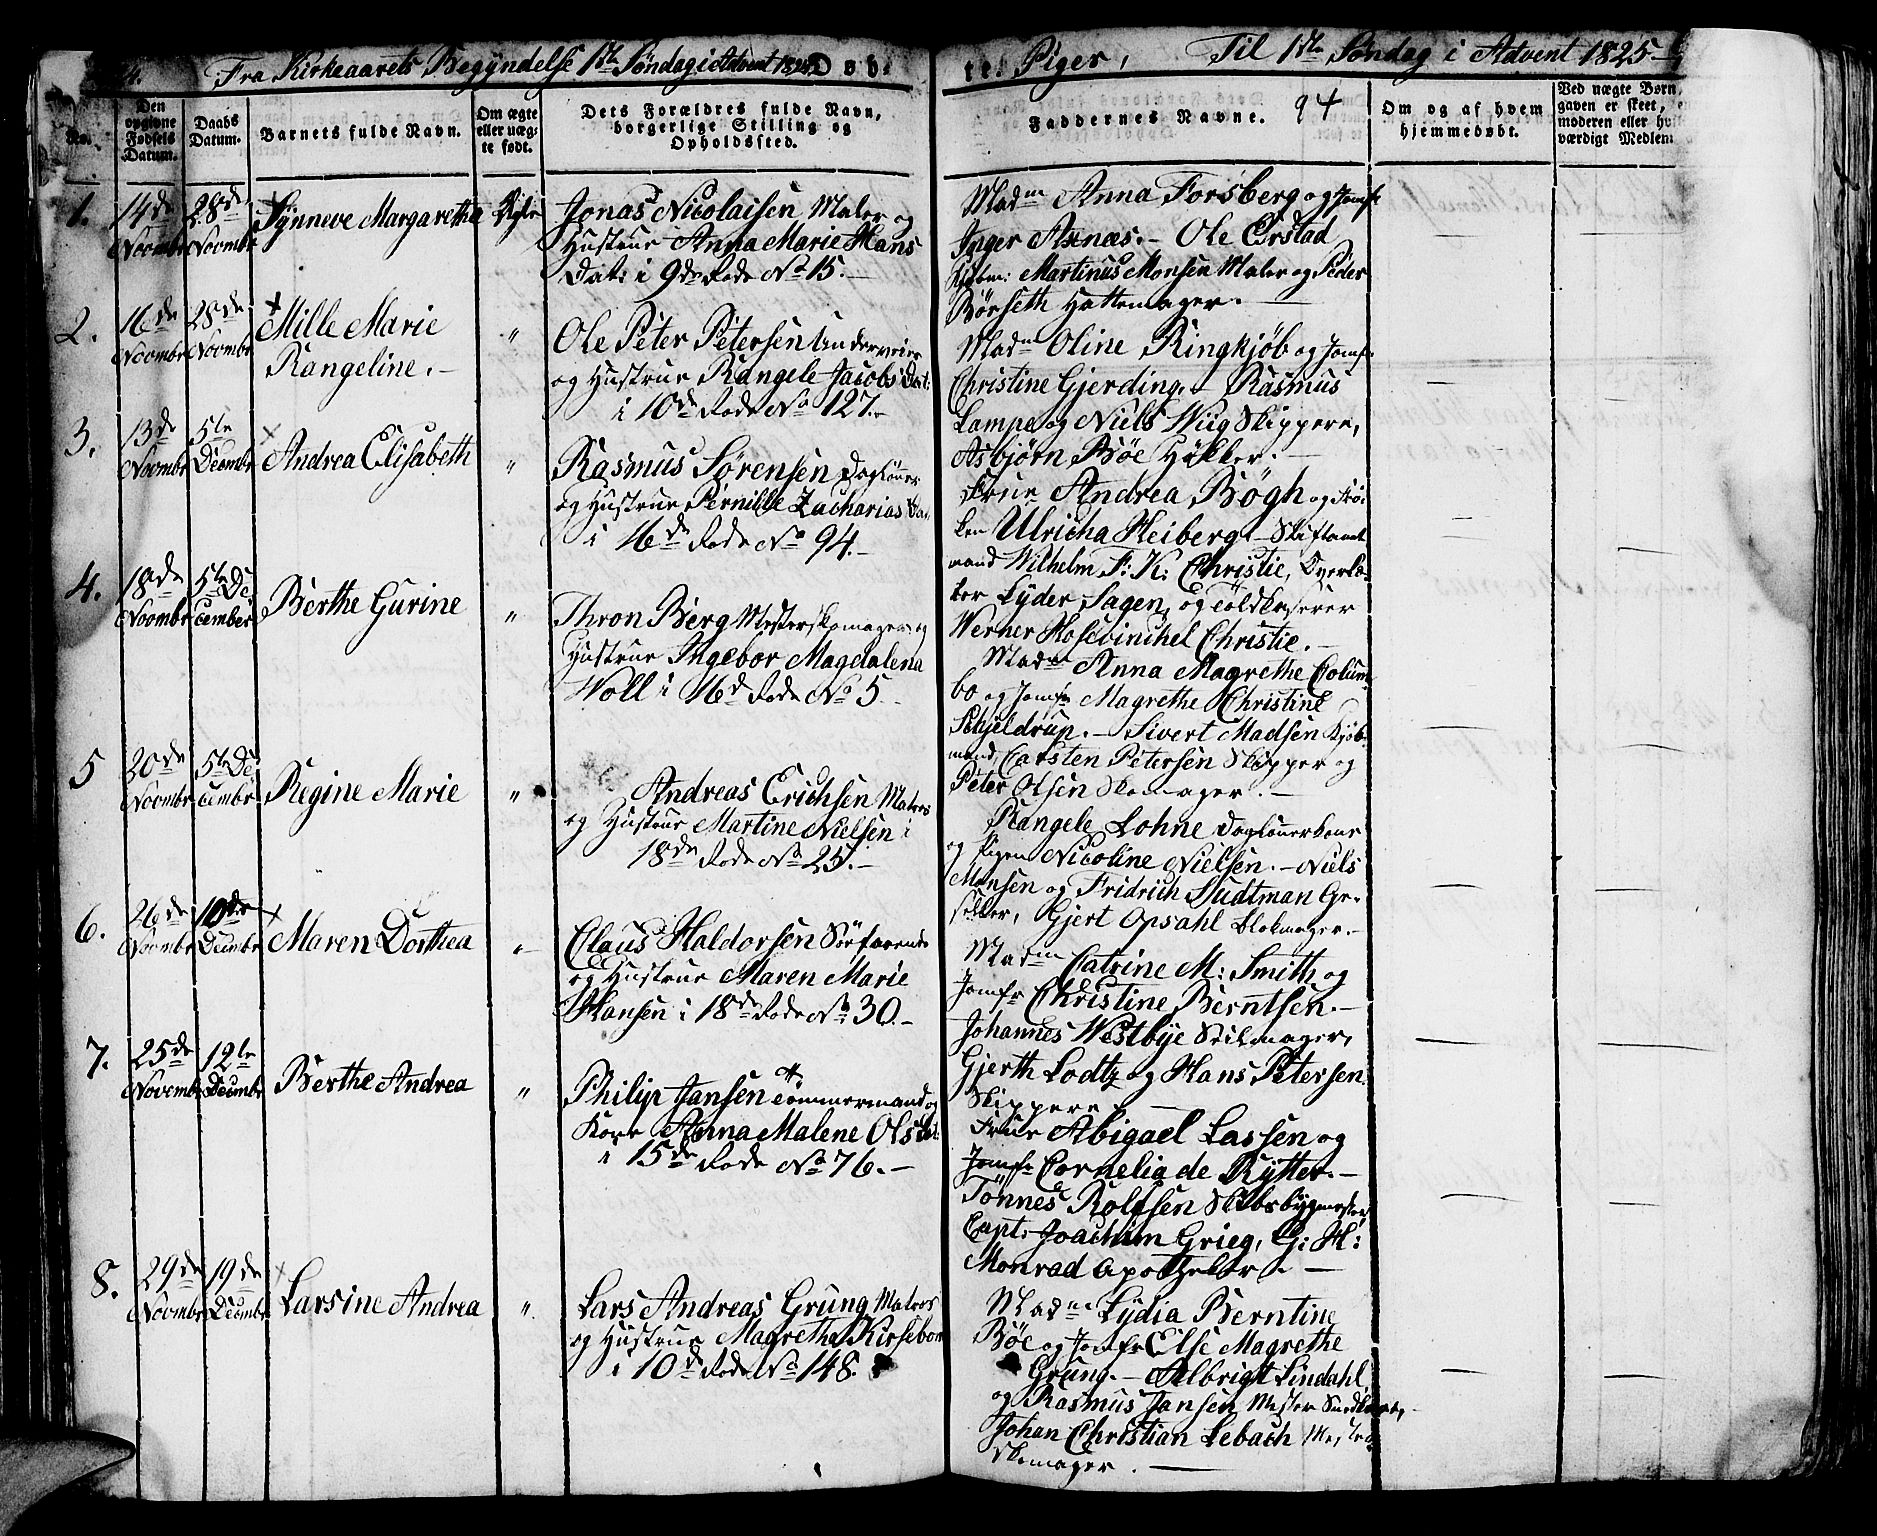 Fra Kirkeaarets Begyndelse 1ste Søndag i Advent Døb-
te: Piger, Til 1ste Søndag i Advent 1825
94
No.
Den opgivne Fødsels Datum.
Daabs Datum.
Barnets fulde Navn.
Om ægte eller uægte født.
Dets Forældres fulde Navn, borgerlige Stilling og Opholdssted.
Faddernes Navne.
Om og af hvem hjemmedøbt.
Ved uægte Børn
gaven er skeet,
moderen eller
værdigt Medlem
1.
14de Novembr
28de Novembr
Synneve Margaretha
Ægte
Jonas Nicolaisen Maler og
Hustrue Anna Marie Hans
Dat: i 9de Rode No 15.
Madm Anna Forsberg og Jomfr
Inger Asenæs. - Ole Ørstad
Martinus Monsen Maler og Peder
Børseth Hattemager.
2.
16de Novembr
28de Novembr
Mille Marie
Rangeline.
"
Ole Peter Petersen Underveier
og Hustrue Rangele Jacobs Dat:
i 10de Rode No 127.
Madm Oline Ringkjøb og Jomfr
Christine Gjerding. - Rasmus
Lampe og Niels Wiig Skippere,
Asbjørn Bøe Høkker.
3.
13de Novembr
5te Decembr
Andrea Elisabeth
"
Rasmus Sørensen Dagløner
og Hustrue Pernille Zacharias Dat:
i 16de Rode No 94.
Frue Andrea Bøgh og Frø-
ken Ulricha Heiberg. - Stiftamt
mand Wilhelm F: K: Christie, Overlæ-
rer Lyder Sagen, og Toldkaserer
Werner Hosewinckel Christie.
4.
18de Novembr
5te December
Berthe Gurine
"
Thron Berg Mesterskomager og
Hustrue Ingebor Magdalena
Woll i 16d Rode No 5.
Madm Anna Magrethe Colum-
bo og Jomfr Magrethe Christine
Schjeldrup. - Sivert Madsen Kjøb-
mand, Carsten Petersen Skipper og
Peter Olsen Skomager.
5
20de Novembr
5te Decembr
Regine Marie
"
Andreas Erichsen Matros
og Hustrue Martine Nielsen i
18de Rode No 25.
Rangele Lohne Daglønerkone
og Pigen Nicoline Nielsen. - Niels
Monsen og Fridrich Sudtman Ge-
seller, Gjert Opsahl Blokmager.
6.
26de Novembr
10de Decembr
Maren Dorthea
"
Claus Haldorsen Søefarende
og Hustrue Maren Marie
Hansen i 18de Rode No 30.
Madm Catrine M: Smith og
Jomfr Christine Berntsen.
Johannes Westbye Seilmager,
Gjerth Lodtz og Hans Petersen
Skippere.
7.
25de Novembr
12te Decembr
Berthe Andrea
"
Philip Jansen Tømmermand og
Kone Anna Malene Ols Dat:
i 15de Rode No 76.
Frue Abigael Lassen og
Jomfr Cornelia de Rytter.
Tønnes Rolfsen Skibsbygmester
Capt: Joachim Grieg, G: H:
Monrad Apotheker.
8.
29de Novembr
19de Decembr
Larsine Andrea
"
Lars Andreas Grung Matros
og Hustrue Magretha Kirsebom
i 10de Rode No 148.
Madme Lydia Berntine
Bøe og Jomfr Else Magrethe
Grung. - Albrigt Lindahl
og Rasmus Jansen Mester Snedkere,
Johan Christian Lebach Mester
Skomager.